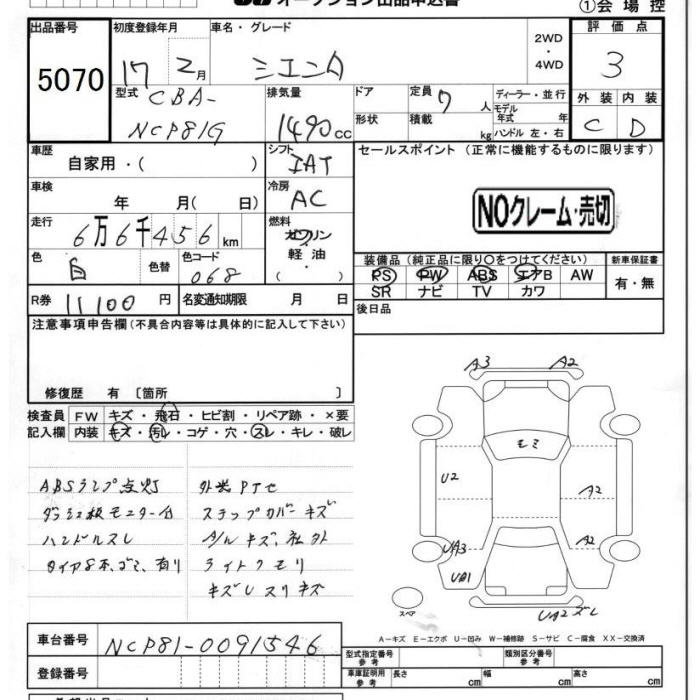 オークション出品申込書
①会場控
出品番号 5070
初度登録年月 17 2月
車名・グレード シエンタ
2WD・4WD
評価点 3
型式 CBA-
NCP81G
排気量 1490cc
ドア
形状
定員 7人
積載 kg
ディーラー・並行
モデル年式 年
ハンドル 左・右
外装 C
内装 D
車歴 自家用・( )
シフト IAT
セールスポイント (正常に機能するものに限ります)
車検 年 月( 日)
冷房 AC
NOクレーム・売切
走行 6万6千456km
燃料 ガソリン
軽油
( )
色 白 色替
色コード 068
装備品(純正品に限り○をつけてください)
新車保証書
PS PW ABS エアB AW
SR ナビ TV カワ
有・無
R券 11100円
名変通知期限 月 日
後日品
注意事項申告欄(不具合内容等は具体的に記入して下さい)
修復歴 有 〔箇所 〕
検査員記入欄
FW キズ・飛石・ヒビ割・リペア跡・×要
内装 キズ・汚レ・コゲ・穴・スレ・キレ・破レ
ABSランプ点灯
ダッシュ板モニター台
ハンドルスレ
タイヤ8本、ゴミ、有り
外装PTセ
ステップカバーキズ
A/Wキズ、社外
ライトクモリ
キズUスリキズ
A3 A2
モミ
U2
A2
UA3
A2
UB1
UA2ズレ
スペア
A-キズ E-エクボ U-凹み W-補修跡 S-サビ C-腐食 XX-交換済
車台番号 NCP81-0091546
登録番号
型式指定番号 参考
類別区分番号 参考
車庫証明用 参考 長さ cm 幅 cm 高さ cm